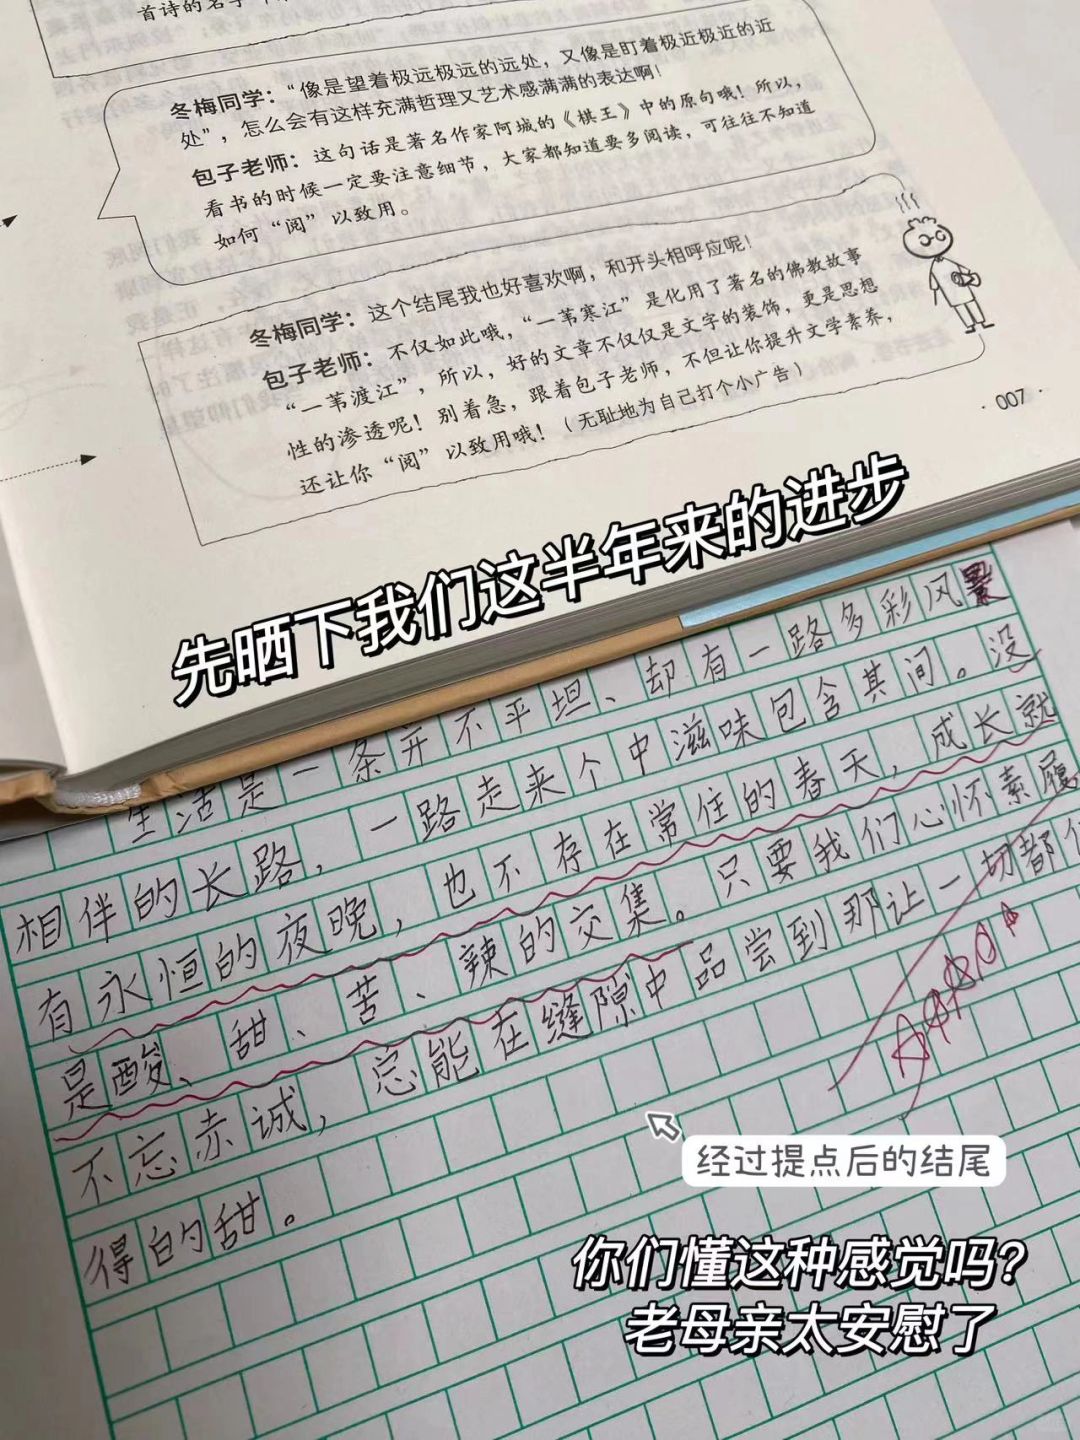 首诗的名字
冬梅同学：“像是望着极远极远的远处，又像是盯着极近极近的近
处”，怎么会有这样充满哲理又艺术感满满的表达啊！
包子老师：这句话是著名作家阿城的《棋王》中的原句哦！所以，
看书的时候一定要注意细节，大家都知道要多阅读，可往往不知道
如何“阅”以致用。
冬梅同学：这个结尾我也好喜欢啊，和开头相呼应呢！
包子老师：不仅如此哦，“一苇寒江”是化用了著名的佛教故事
“一苇渡江”，所以，好的文章不仅仅是文字的装饰，更是思想
性的渗透呢！别着急，跟着包子老师，不但让你提升文学素养，
还让你“阅”以致用哦！（无耻地为自己打个小广告）
· 007 ·
先晒下我们这半年来的进步
生活是一条并不平坦、却有一路多彩风景
相伴的长路，一路走来个中滋味包含其间。没
有永恒的夜晚，也不存在常住的春天，成长就
是酸、甜、苦、辣的交集。只要我们心怀素履
不忘赤诚，总能在缝隙中品尝到那让一切都
得的甜。
经过提点后的结尾
你们懂这种感觉吗？
老母亲太安慰了